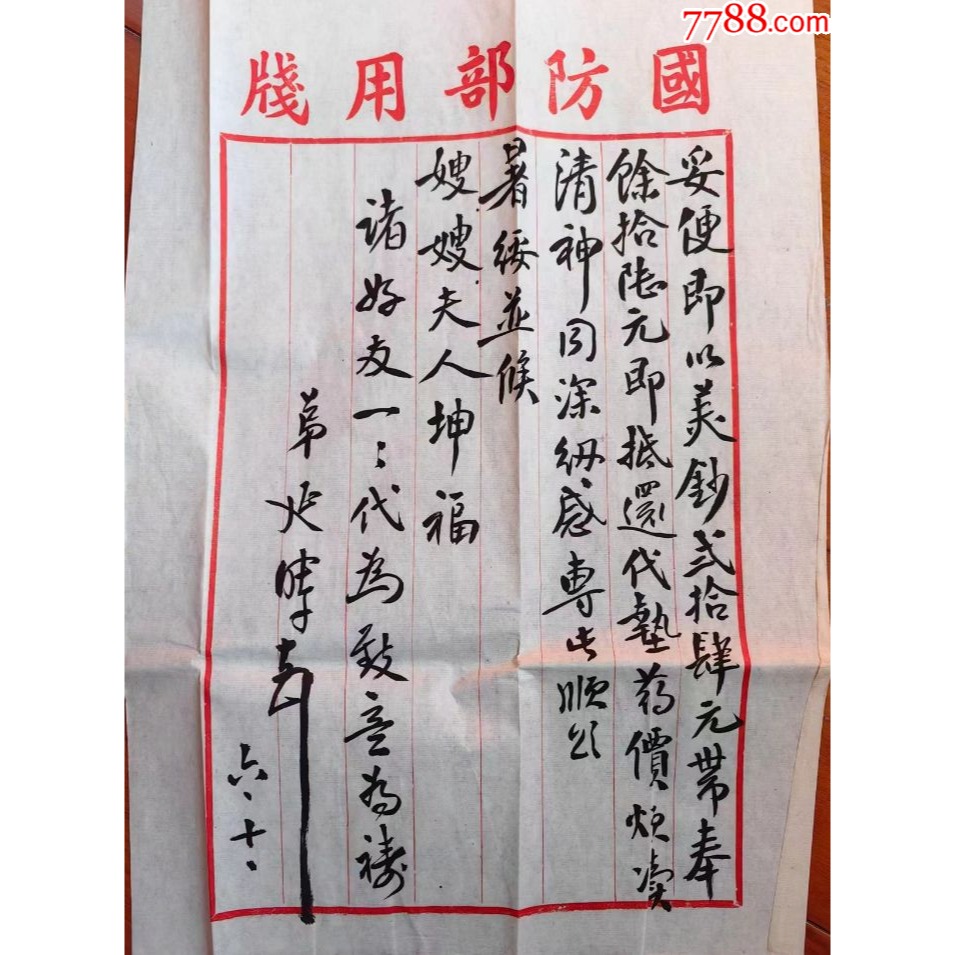 7788.com
國防部用牋
妥便即以美鈔弍拾肆元帶奉
餘拾陸元即抵還代墊藥價煩瀆
清神同深紉感專此順頌
暑綏並候
嫂嫂夫人坤福
諸好友一;代為致意為禱
弟
六、十、